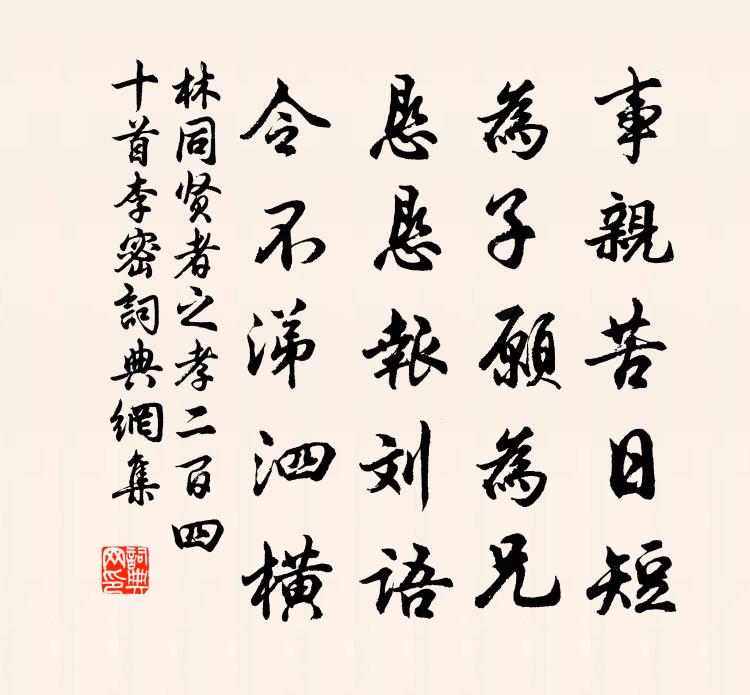 事親苦日短
為子願為兄
恳恳報刘語
令不涕泗橫
林同贤者之孝二百四
十首李密詞典網集
詞典网印